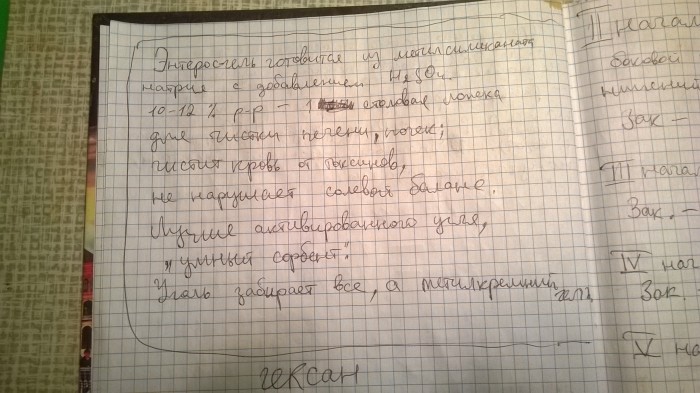 Энтеросгель готовится из метилсиликоната
натрия с добавлением H₂SO₄.
10-12 % р-р – 1 столовая ложка
для чистки печени, почек;
чистит кровь от токсинов,
не нарушает солевой баланс.
Лучше активированного угля,
„умный сорбент".
Уголь забирает все, а метилкремний
гель
гексан
II начал
боковой
Зак –
III начал
Зак. –
IV нач
Зак.
V на